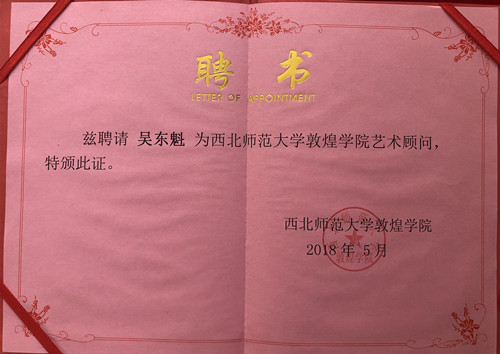 聘书
LETTER OF APPOINTMENT
兹聘请 吴东魁 为西北师范大学敦煌学院艺术顾问,
特颁此证。
西北师范大学敦煌学院
2018 年 5 月
敦煌学院